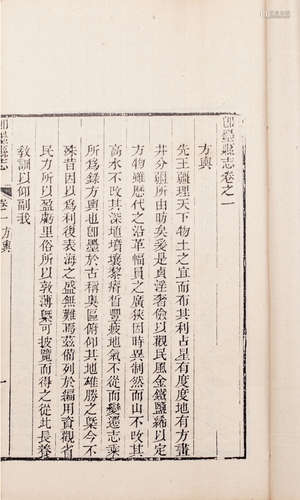 即墨縣志卷之一
方輿
先王疆理天下物土之宜而布其利占星有度度地有方畫
井分疆所由昉矣爰是貞淫奢儉以觀民風金鐵鹽絺以定
方物雖歷代之沿革幅員之廣狹因時異制然而山不改其
高水不改其深地墳壤黎瘠皙豐疲地氣不從而變遷志乘
所為錄方輿也即墨於古稱奧區俯仰其地雄勝之槩今不
殊昔因以為利後表海之盛無難焉茲備列於編用資觀省
民力所以盈虧里俗所以敦薄槩可披覽而得之從此長養
教訓以仰副我
即墨縣志
卷一 方輿
一